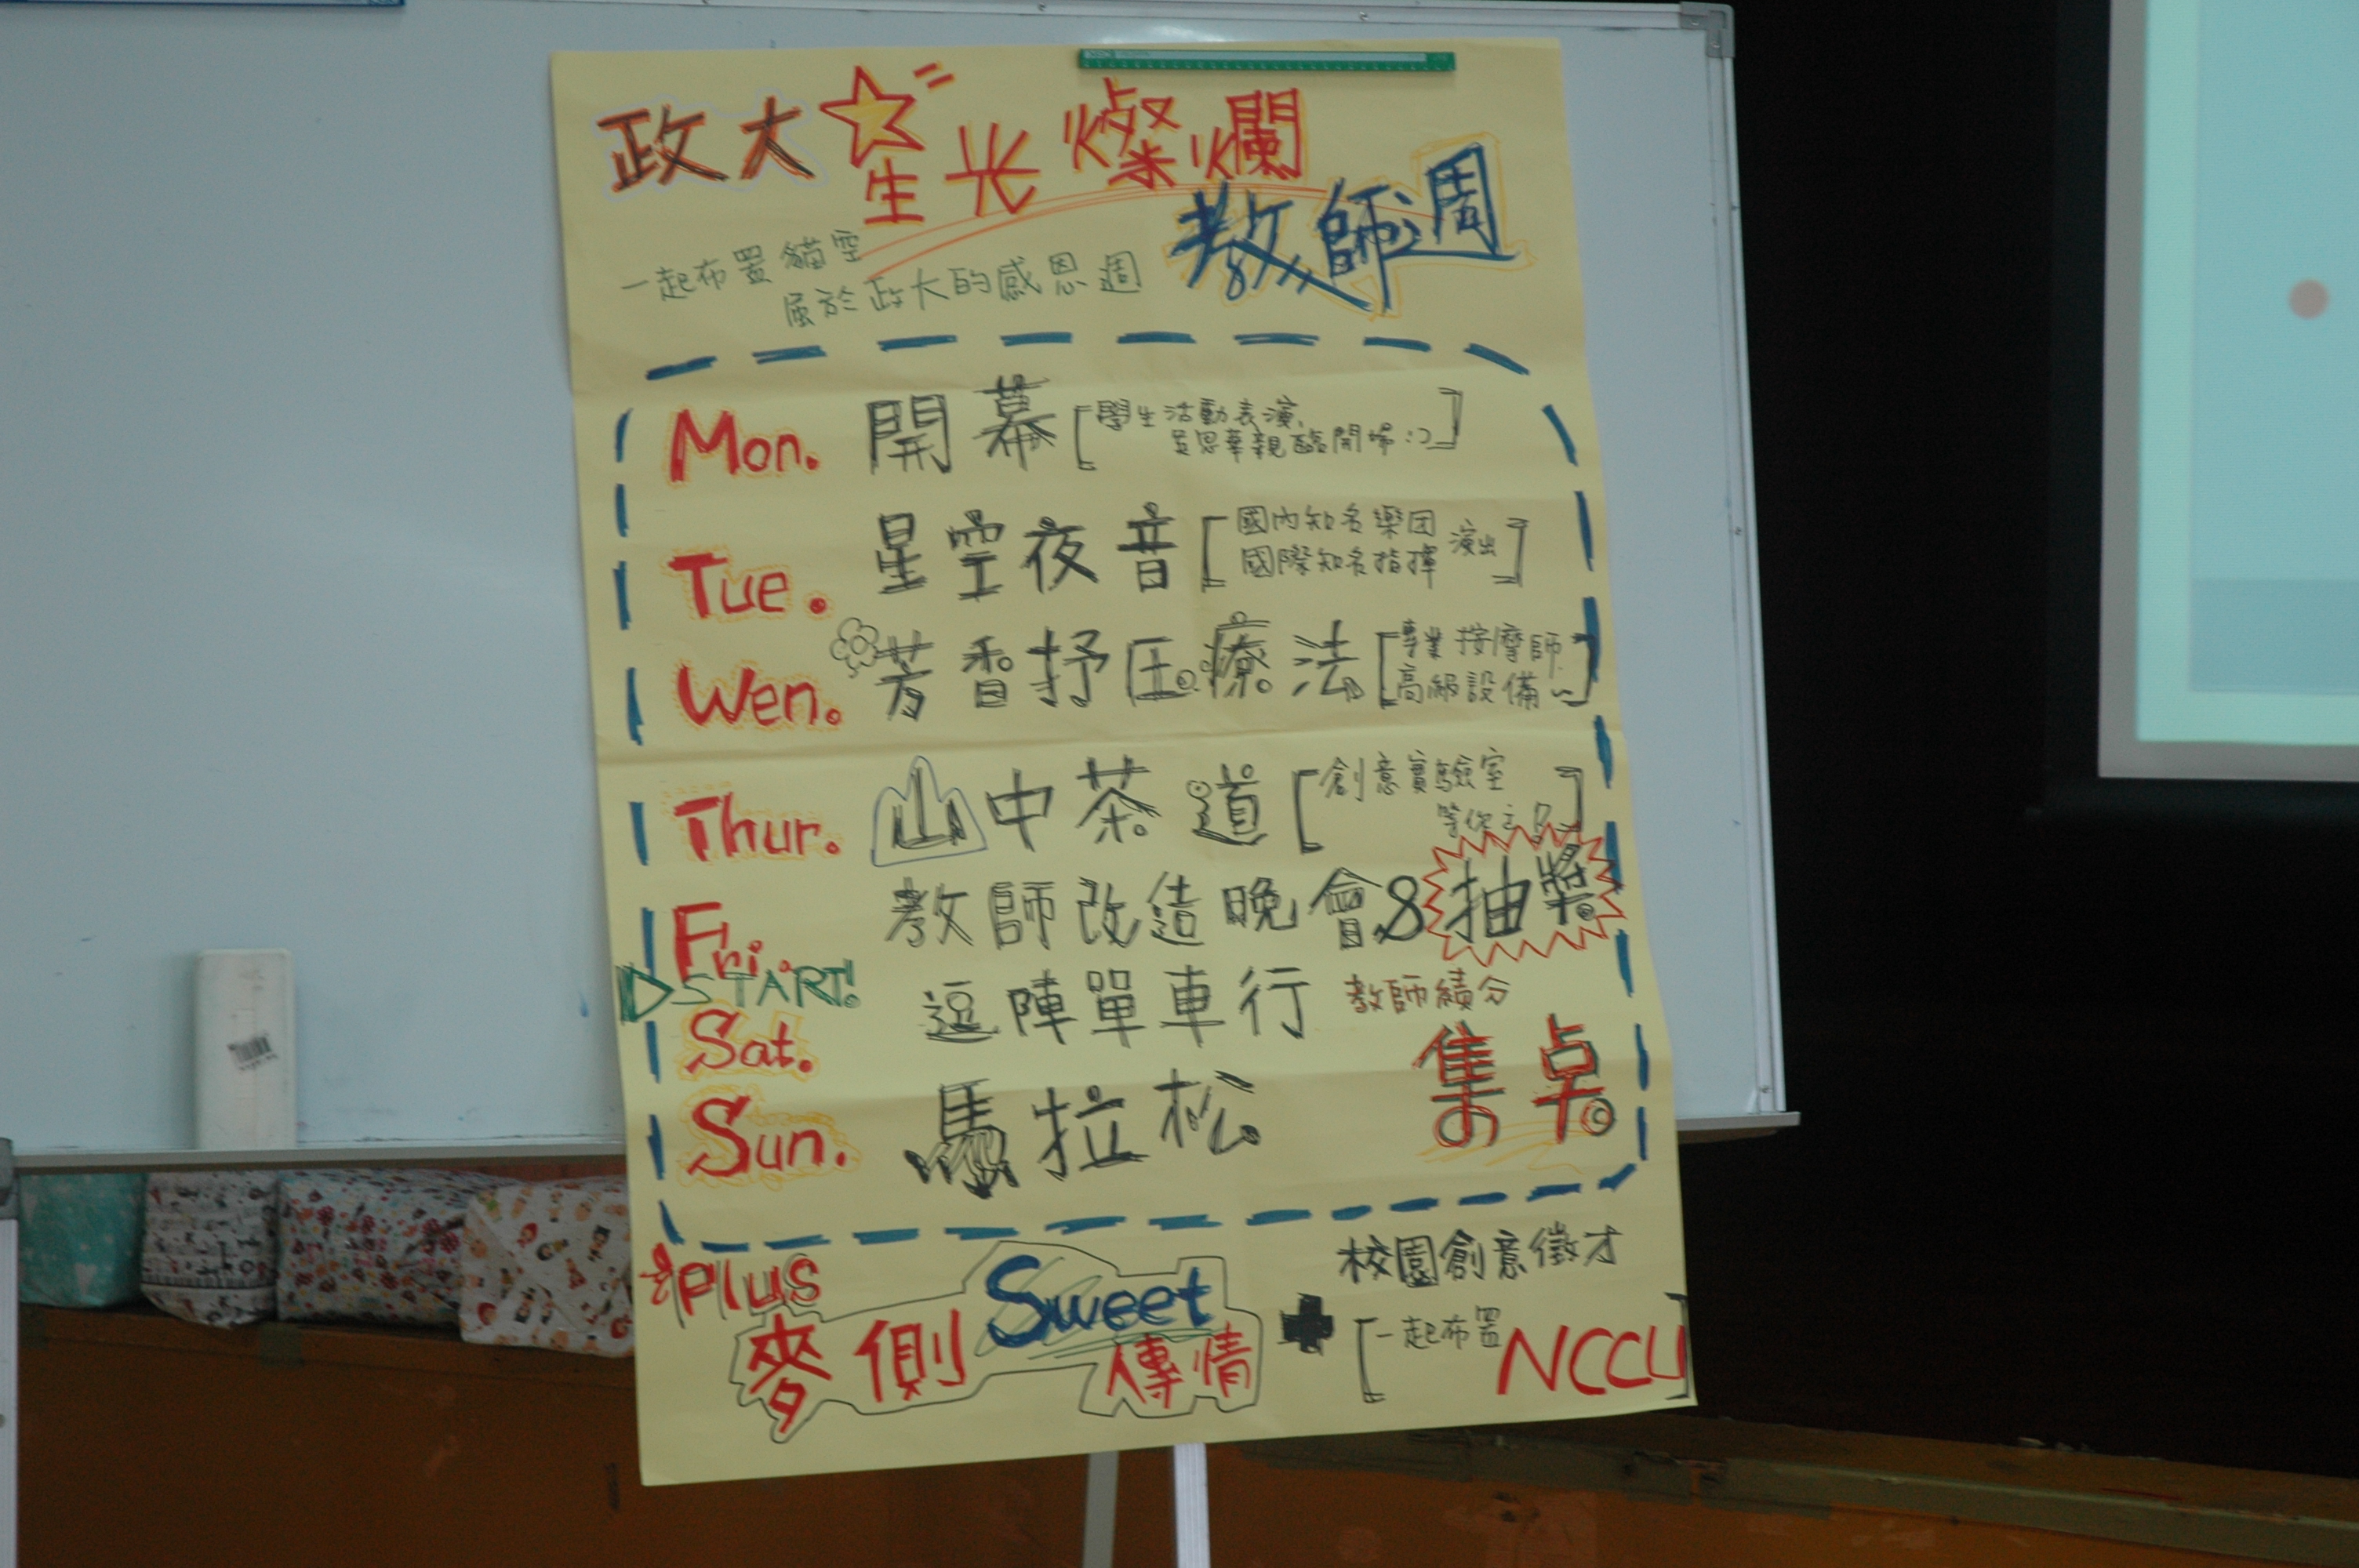 政大星光燦爛
教師週
一起布置貓空
屬於政大的感恩週
Mon. 開幕 [學生活動表演,
思華親臨開場:)]
Tue. 星空夜音 [國內知名樂团
國際知名指揮 演出]
Wen. 芳香抒压療法 [專業按摩師
高級設備~]
Thur. 山中茶道 [創意實驗室
等你]
Fri. 教師改造晚會& 抽獎
START!
Sat. 逗陣單車行 教師績分
集点
Sun. 馬拉松
plus
麥側 Sweet 傳情
+ 校園創意徵才
[一起布置 NCCU]